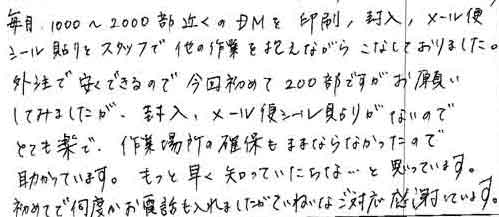 毎月、1000～2000部近くのDMを印刷，封入，メール便
シール貼りとスタッフで他の作業を抱えながらこなしておりました。
外注で安くできるので今回初めて200部ですがお願い
してみましたが、封入、メール便シール貼りがないので
とても楽で、作業場所の確保もままならなかったので
助かっています。もっと早く知っていたらな…と思っています。
初めてで何度かお電話も入れましたがていねいなご対応感謝しています。